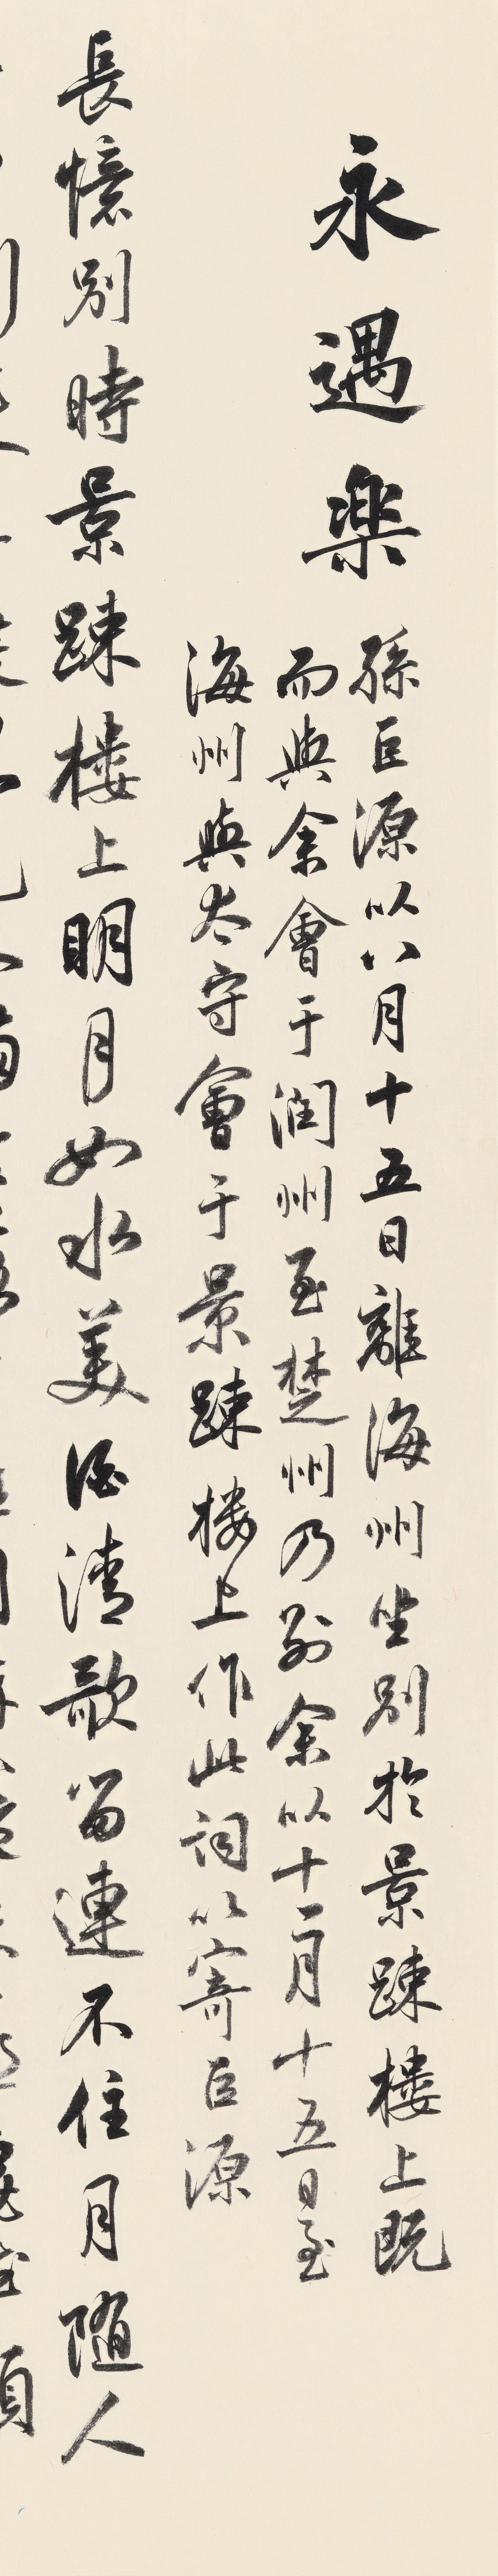 永遇楽
孫巨源以八月十五日離海州坐別於景踈樓上既
而與余會于潤州至楚州乃別余以十一月十五日至
海州與太守會于景踈樓上作此詞以寄巨源
長憶別時景踈樓上明月如水美酒清歌留連不住月随人